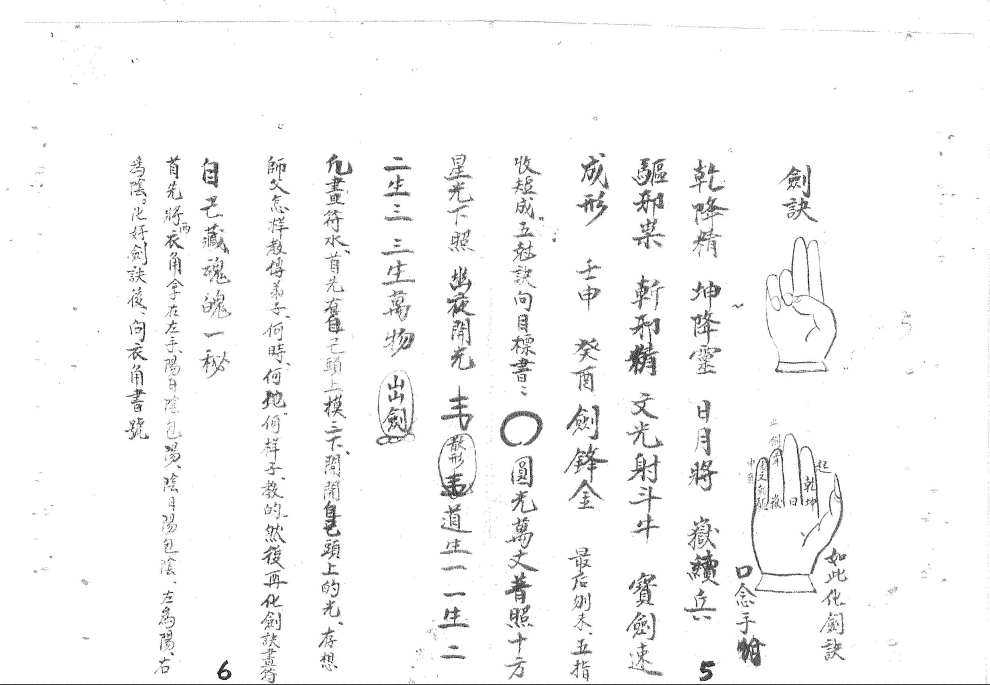 劍訣
如此化劍訣
口念手
起
乾坤
日
乾降精 坤降靈 日月將 嶽續兵
驅邪祟 斬邪精 文光射斗牛 寶劍速
成形 壬申 癸酉 劍鋒金 最后列未、五指
收短成五 訣向目標書: 〇 圓光萬丈普照十方
5
星光下照 幽夜開光 散形 道生一 一生二
二生三 三生萬物 出劍
凡畫符水、首先在自己頭上摸三下、開開自己頭上的光、存想
師父怎樣教傳弟子、何時、何地、何样子、教的、然後再化劍訣畫符
自己藏魂魄一秘
首先將兩衣角拿在左手、陽日陰包陽、陰日陽包陰、左為陽、右
為陰。化好劍訣後、向衣角書號
6